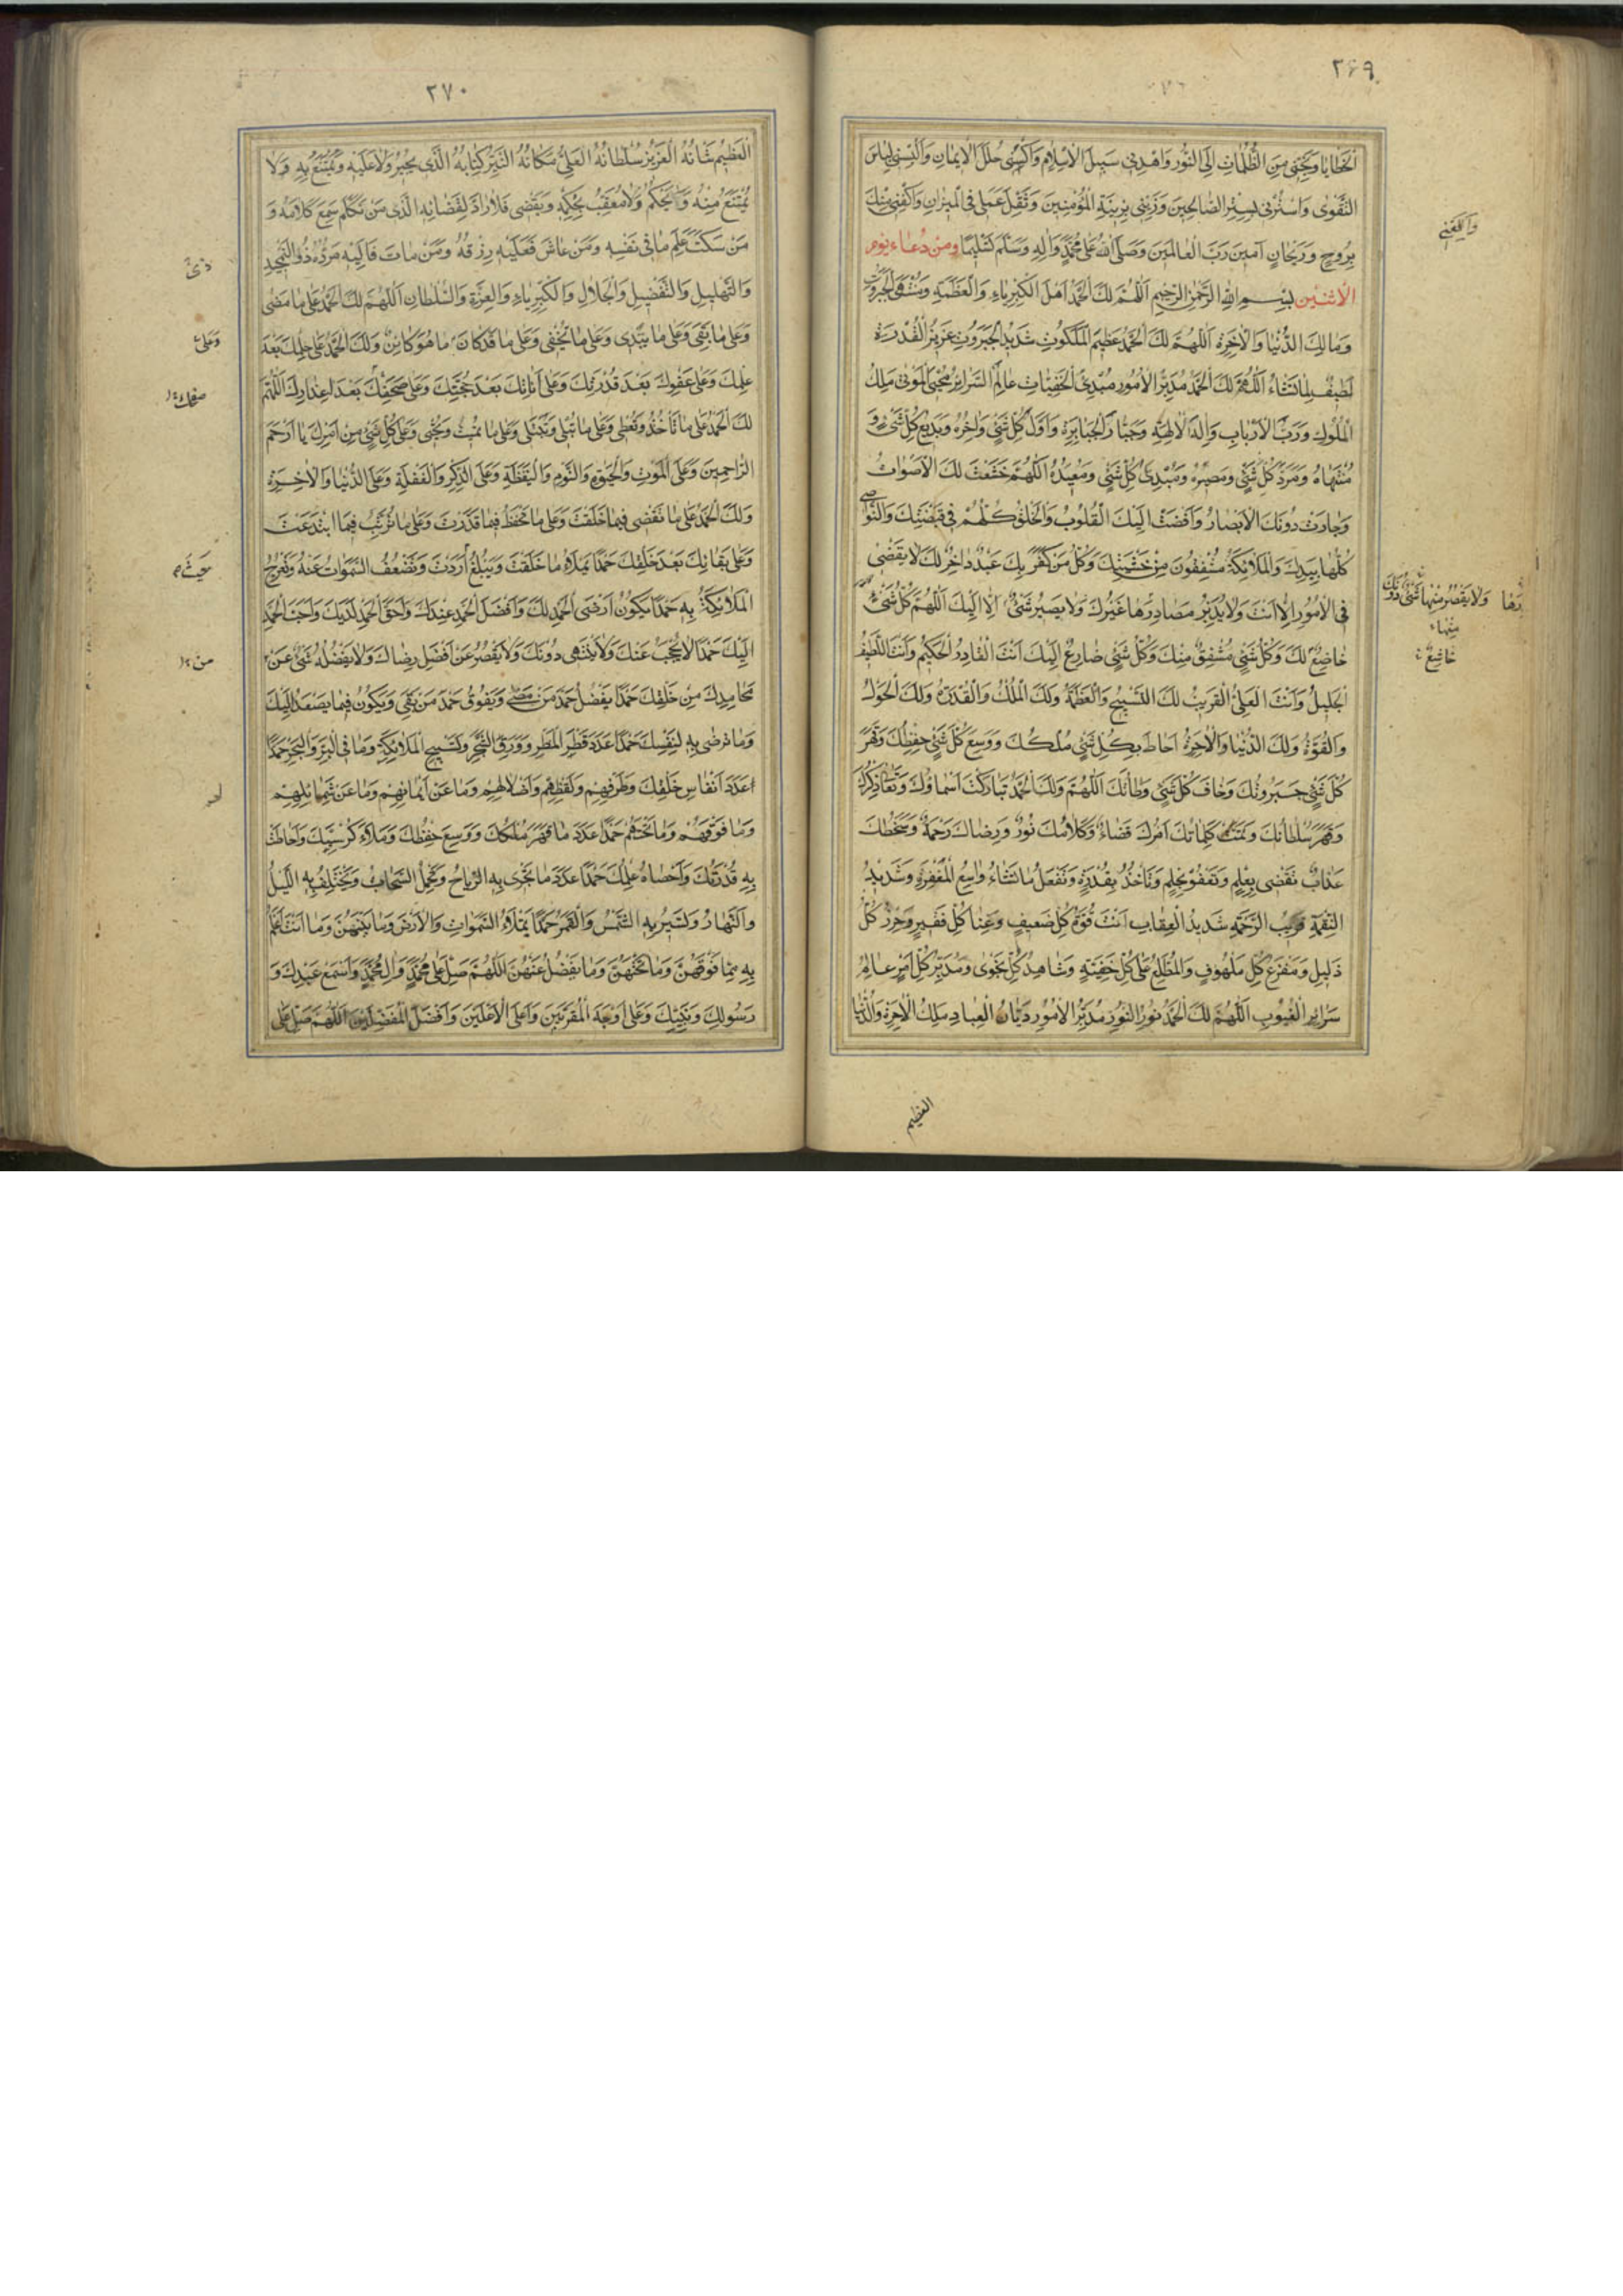 ٢٦٩
الخطايا ونجني من الظلمات الى النور واهدني سبيل الاسلام واكسني حلل الايمان والبسني لباس
التقوى واسترني بستر الصالحين وزيني بزينة المؤمنين وثقل عملي في الميزان واكفني منك
بروح وريحان آمين رب العالمين وصلى الله على محمد واله وسلم تسليما ومن دعاء يوم
الاثنين بسم الله الرحمن الرحيم اللهم لك الحمد اهل الكبرياء والعظمة ومنتهى الجبروت
ومالك الدنيا والاخرة اللهم لك الحمد عظيم الملكوت شديد الجبروت عزيز القدرة
لطيف لما تشاء اللهم لك الحمد مدبر الامور مبدئ الخفيات عالم السرائر محيي الموتى ملك
الملوك ورب الارباب واله الالهة وجبار الجبابرة واول كل شئ واخره وبديع كل شئ و
منتهاه ومرد كل شئ ومصيره ومبدئ كل شئ ومعيده اللهم خشعت لك الاصوات
وحارت دونك الابصار وافضت اليك القلوب والخلق كلهم في قبضتك والنواصي
كلها بيدك والملائكة مشفقون من خشيتك وكل من كفر بك عبد داخر لك لا يقضى
في الامور الا انت ولا يدبر مصادرها غيرك ولا يصير شئ الا اليك اللهم كل شئ
خاضع لك وكل شئ مشفق منك وكل شئ ضارع اليك انت القادر الحكيم وانت اللطيف
الجليل وانت العلي القريب لك التسبيح والعظمة ولك الملك والقدرة ولك الحول
والقوة ولك الدنيا والاخرة احاط بكل شئ ملكك ووسع كل شئ حفظك وقهر
كل شئ جبروتك وخاف كل شئ وطأتك اللهم ولك الحمد تباركت اسماؤك وتعالى ذكرك
وقهر سلطانك وتمت كلماتك امرك قضاء وكلامك نور ورضاك رحمة وسخطك
عذاب تقضى بعلم وتعفو بحلم وتأخذ بقدرة وتفعل ما تشاء واسع المغفرة وشديد
النقمة قريب الرحمة شديد العقاب انت قوة كل ضعيف وغنا كل فقير وحرز كل
ذليل ومفزع كل ملهوف والمطلع على كل خفية وشاهد كل نجوى ومدبر كل امر عالم
سرائر الغيوب اللهم لك الحمد نور النور مدبر الامور ديان العباد ملك الاخرة والدنيا
ولا يقصر منها شئ دونك
منها
خاضع
العظيم
٢٧٠
العظيم شانه العزيز سلطانه العلي مكانه النير كتابه الذي يجير ولا عليه ويمتنع به ولا
يمتنع منه ويحكم ولا معقب بحكمه ويقضى فلا راد لقضائه الذي من تكلم سمع كلامه و
من سكت علم ما في نفسه ومن عاش فعليه رزقه ومن مات فاليه مرده ذو التمجيد
والتهليل والتفضيل والجلال والكبرياء والعزة والسلطان اللهم لك الحمد على ما مضى
وعلى ما بقى وعلى ما تبدى وعلى ما تخفى وعلى ما قد كان ما هو كائن ولك الحمد على حلمك بعد
علمك وعلى عفوك بعد قدرتك وعلى اناتك بعد حجتك وعلى صفحك بعد اعذارك اللهم
لك الحمد على ما تأخذ وتعطى وعلى ما تبلى وتبتلى وعلى ما تميت وتحيى وعلى كل شئ من امرك يا ارحم
الراحمين وعلى الموت والحيوة والنوم واليقظة وعلى الذكر والغفلة وعلى الدنيا والاخرة
ولك الحمد على ما تقضى فيما خلقت وعلى ما تحفظ فيما قدرت وعلى ما ترتب فيما ابتدعت
وعلى بقائك بعد خلقك حمدا يملأ ما خلقت ويبلغ اردت وتضعف السموات عنه وتعرج
الملائكة به حمدا يكون ارضى الحمد لك وافضل الحمد عندك واحق الحمد لديك واحب الحمد
اليك حمدا لا يحجب عنك ولا ينتهى دونك ولا يقصر عن افضل رضاك ولا يفضله شئ عن
محامدك من خلقك حمدا يفضل حمد من مضى ويفوق حمد من بقى ويكون فيما يصعد اليك
وما ترضى به لنفسك حمدا عدد قطر المطر وورق الشجر وتسبيح الملائكة وما في البر والبحر حمدا
عدد انفاس خلقك وطرفهم ولفظهم واضلالهم وما عن ايمانهم وما عن شمائلهم
وما فوقهم وما تحتهم حمدا عدد ما قهر ملكك ووسع حفظك وملأ كرسيك واحاطت
به قدرتك واحصاه علمك حمدا عدد ما تجرى به الرياح وتحمل السحاب ويختلف به الليل
والنهار وتسير به الشمس والقمر حمدا يملأ السموات والارض وما بينهن وما انت اعلم
به مما فوقهن وما تحتهن وما يفضل عنهن اللهم صل على محمد وال محمد واسمع عبدك و
رسولك ونبيك وعلى اوجه المقربين واعلى الاعلين وافضل المفضلين اللهم صل على
ذى
وعلى
صفحك
حيث
من